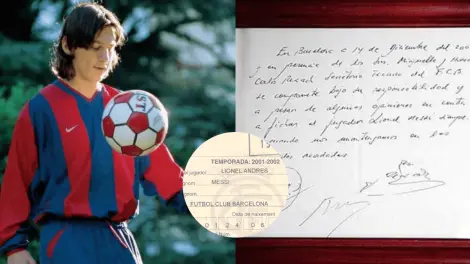 En Barcelona a 14 de Diciembre del
y en presencia de los Srs. Minguella y Horacio
Carles Rexach Secretario Técnico del F.C.B.
se compromete bajo su responsabilidad y
a pesar de algunas opiniones en contra
a fichar al jugador Lionel Messi siempre
cuando nos mantengamos en las
acordadas
TEMPORADA: 2001-2002
LIONEL ANDRES
MESSI
FUTBOL CLUB BARCELONA
Data de naixement
0 1 2 4 0 6